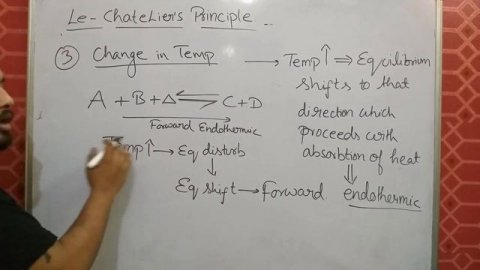 Le-Chatelier's Principle
③ Change in Temp
A + B + Δ ⇌ C + D
Forward Endothermic
Temp ↑ → Eq disturb
↓
Eq shift → forward
→ Temp ↑ ⇒ Equilibrium
shifts to that
direction which
proceeds with
absorbtion of heat
⇓
endothermic